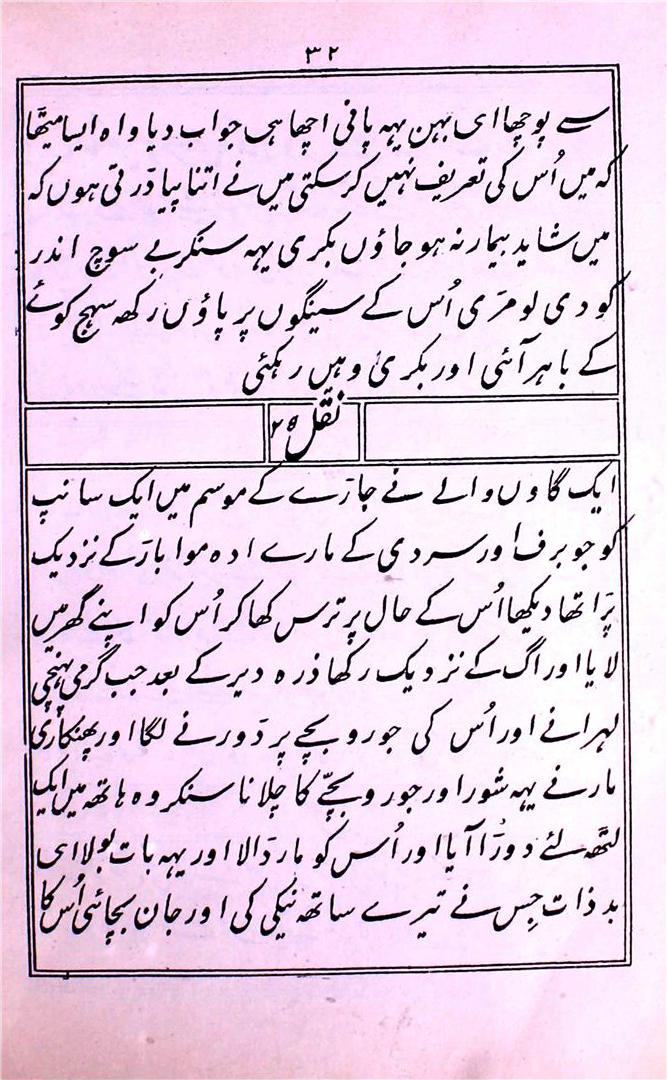 ۳۲
سے پوچھا ای بہن یہہ پانی اچھا ہی جواب دیا واہ ایسا میٹھا
کہ میں اُس کی تعریف نہیں کر سکتی میں نے اتنا پیا ڈرتی ہوں کہ
میں شاید بیمار نہ ہو جاؤں بکری یہہ سنکر بے سوچ اندر
کو دی لومڑی اُس کے سینگوں پر پاؤں رکھہ سہج کوئے
کے باہر آئی اور بکری وہیں رہگئی
نقل ۲۹
ایک گاوں والے نے جاڑے کے موسم میں ایک سانپ
کو جو برف اور سردی کے مارے ادہ موا باڑ کے نزدیک
پڑا تھا دیکھا اُس کے حال پر ترس کھا کر اُس کو اپنے گھر میں
لایا اور اگ کے نزدیک رکھا ذرہ دیر کے بعد جب گرمی پہنچی
لہرانے اور اُس کی جورو بچے پر دَورنے لگا اور پھنکاری
مارنے یہہ شور اور جورو بچّے کا چلانا سنکر وہ ہاتھہ میں ایک
لٹھہ لئے دوڑا آیا اور اُس کو مار ڈالا اور یہہ بات بولا ای
بد ذات جِس نے تیرے ساتھہ نیکی کی اور جان بچائی اُس کا